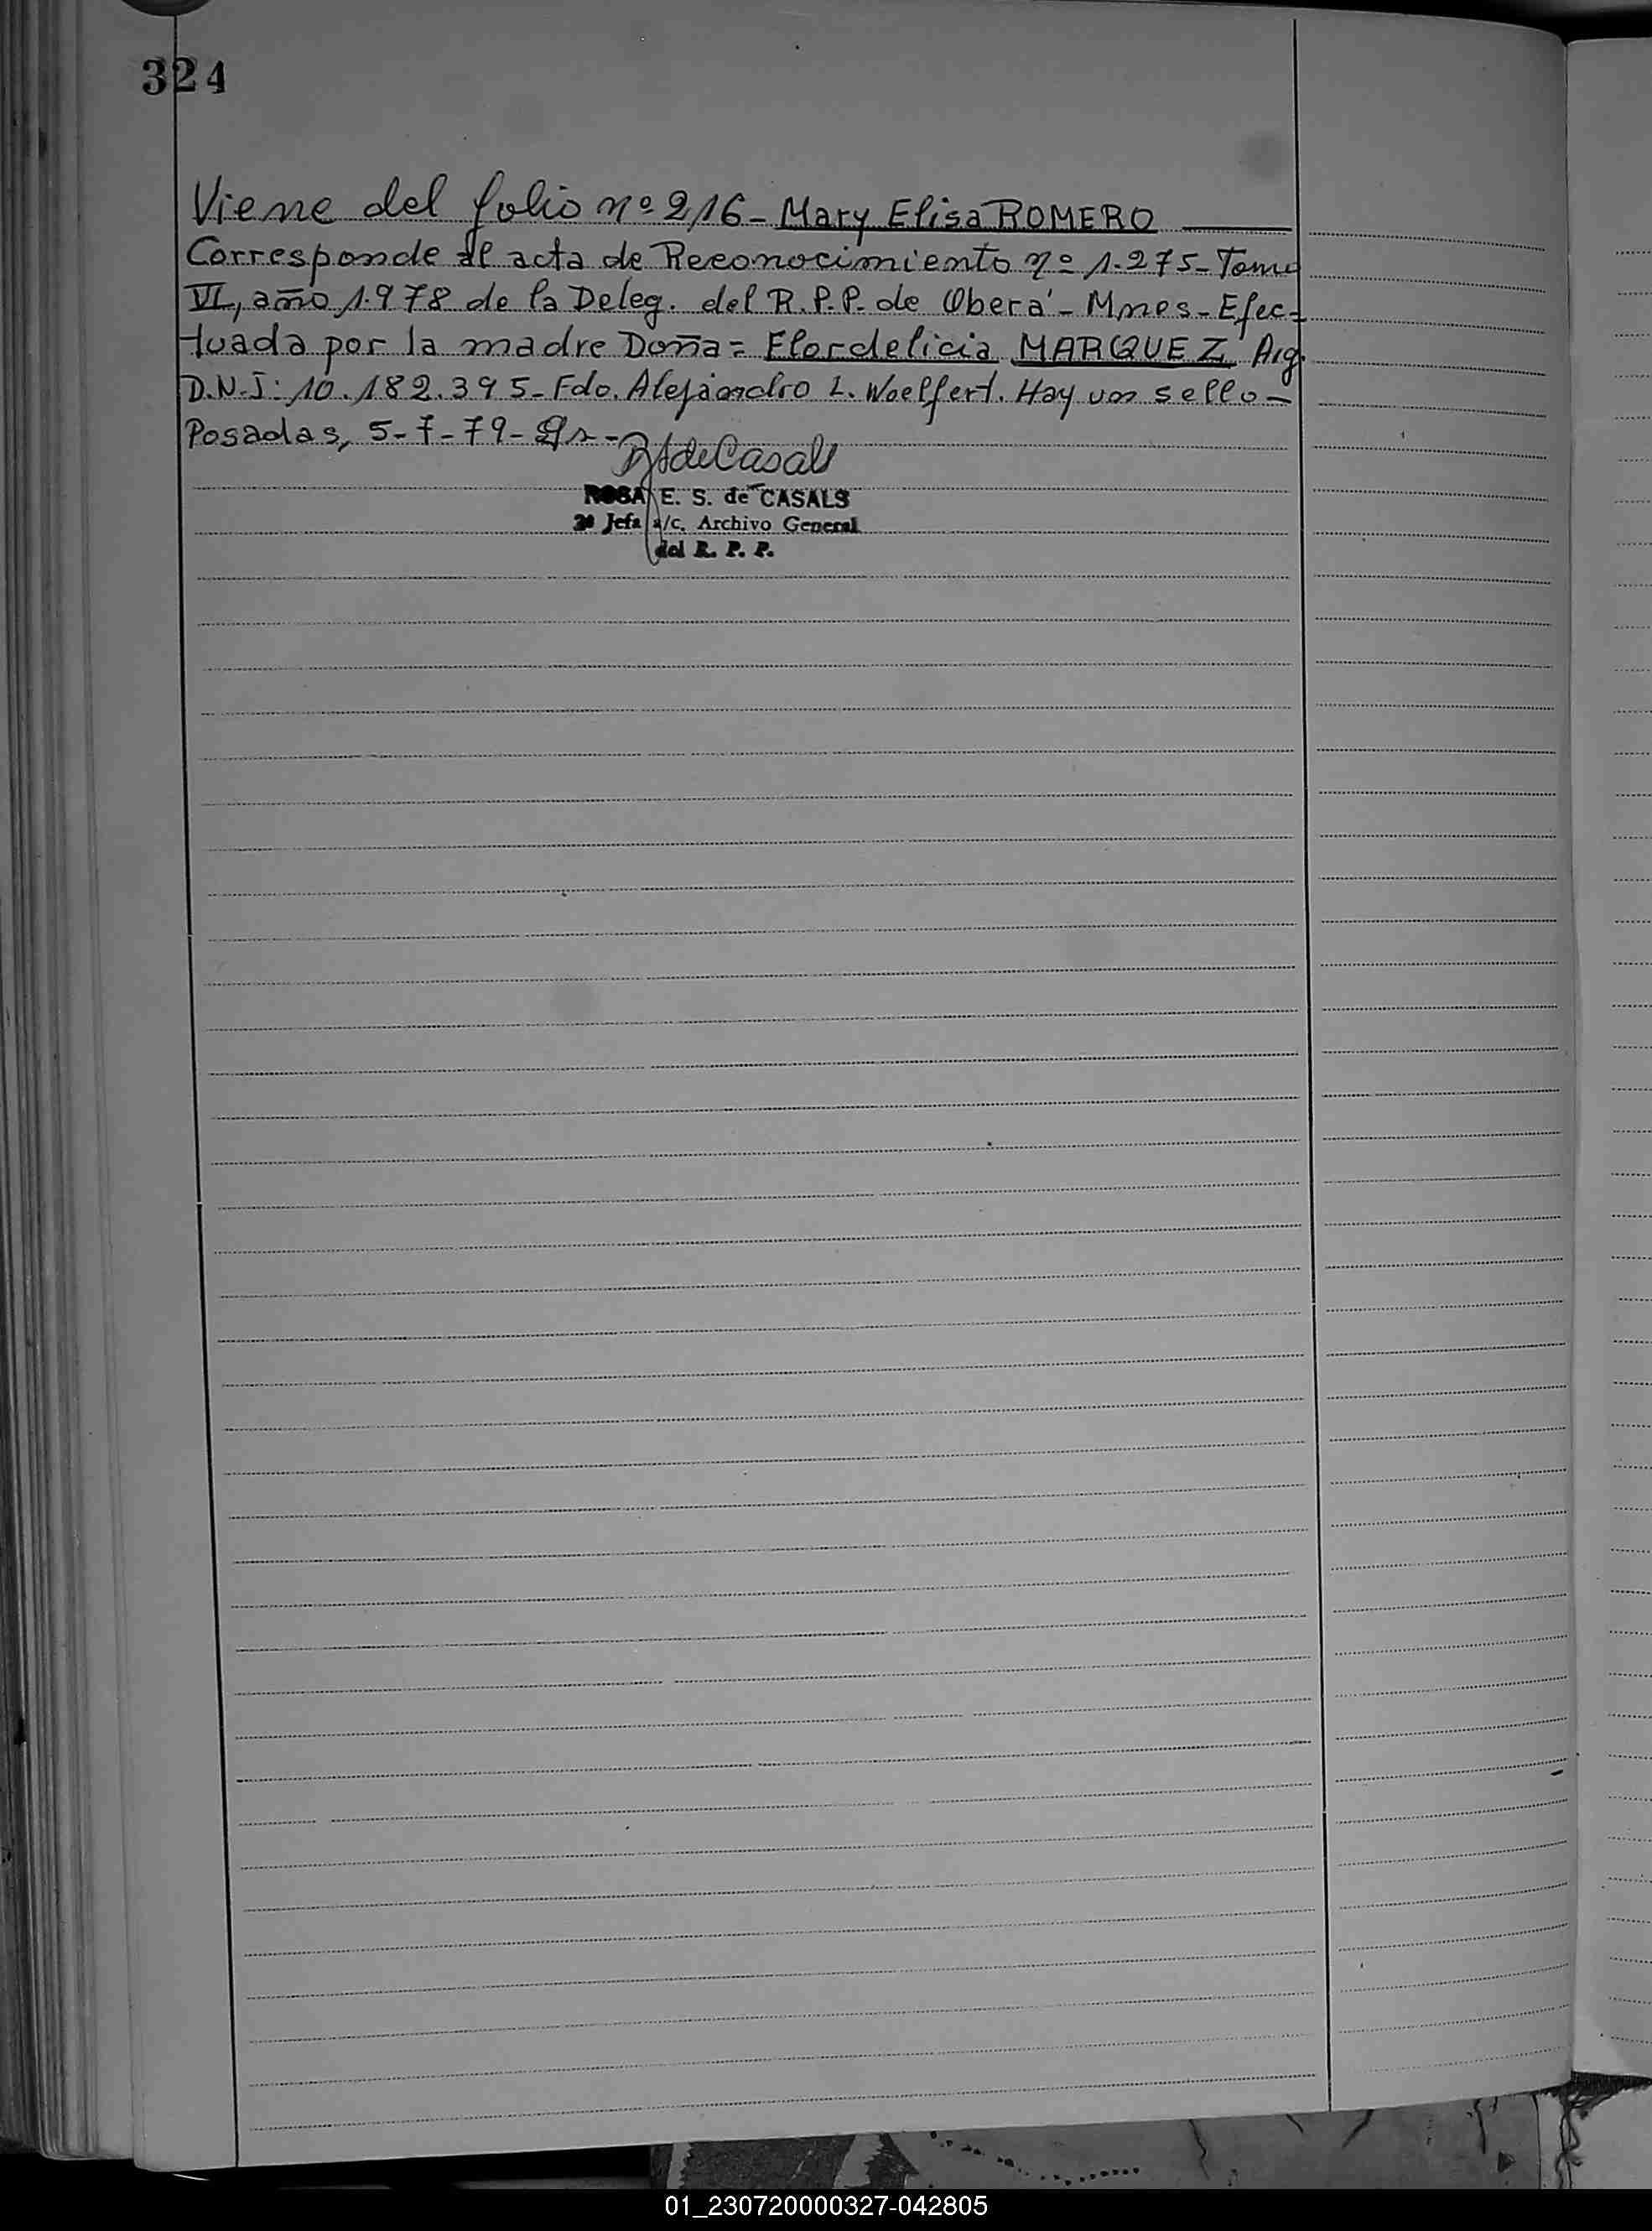 324
Viene del folio nº 216- Mary Elisa ROMERO
Corresponde al acta de Reconocimiento nº 1.275- Tomo
VI, año 1.978 de la Deleg. del R.P.P. de Oberá- Mnes- Efec-
tuada por la madre Doña= Flordelicia MARQUEZ Arg.
D.N.I: 10.182.395- Fdo. Alejandro L. Woelfert. Hay un sello-
Posadas, 5-7-79-
ROSA E. S. de CASALS
2ª Jefa a/c. Archivo General
del R. P. P.
01_230720000327-042805